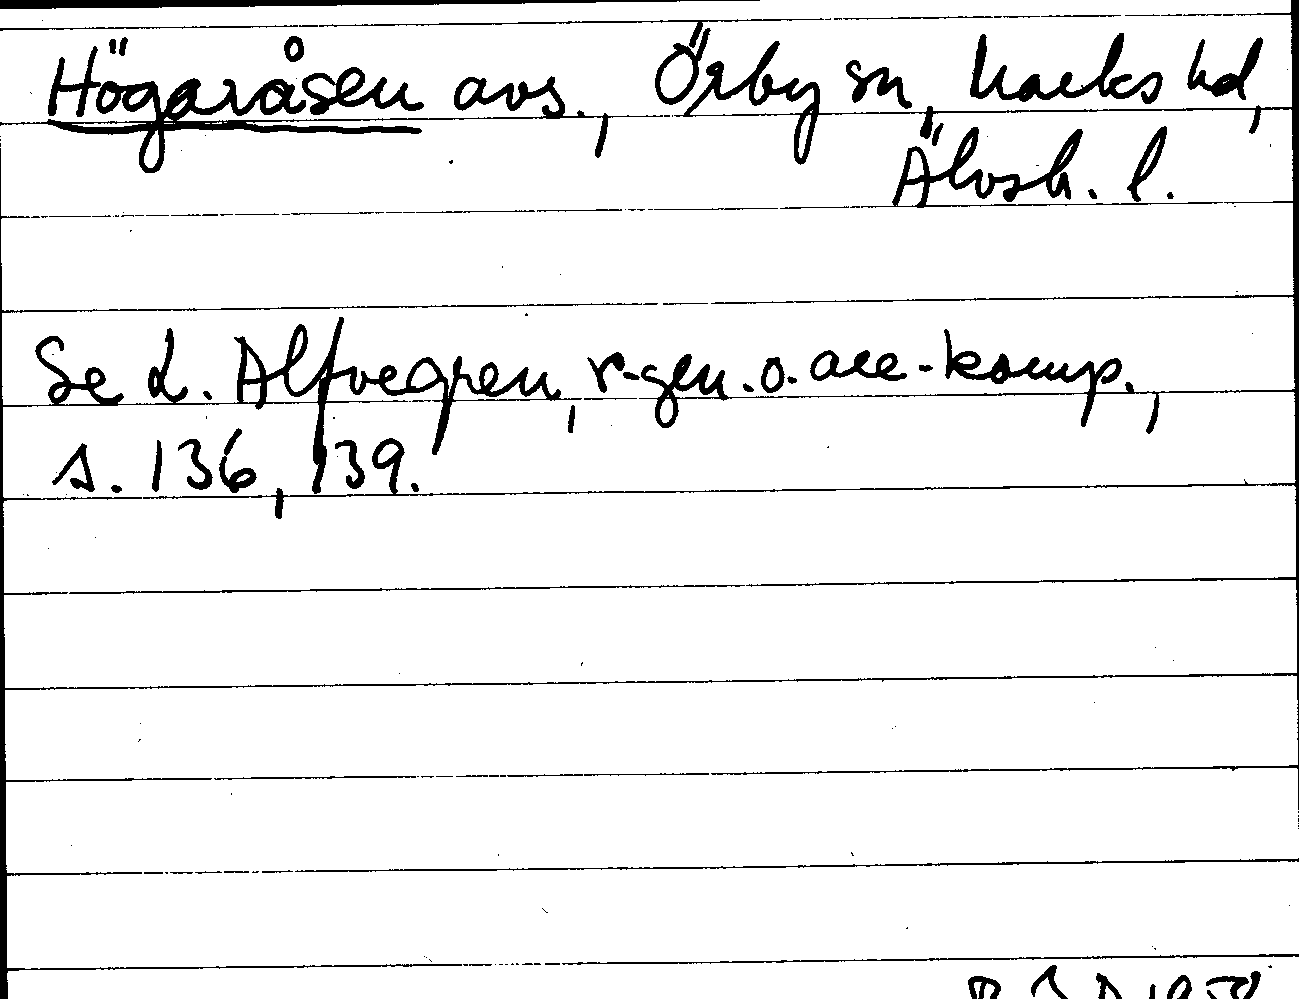 Högaråsen avs., Örby sn, Marks hd,
Älvsb. l.
Se L. Alfvegren, r-gen. o. ack-komp.,
s. 136, 139.